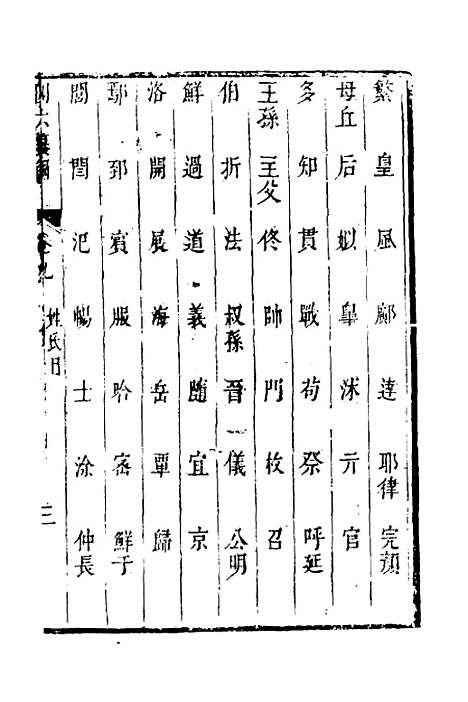 繁 皇 風 鄺 達 耶律 完顏
母丘 后 姒 臯 沭 亓 官
多 知 貫 戰 苟 祭 呼延
王孫 王父 佟 帥 門 枚 召
伯 折 法 叔孫 晉 儀 公明
鮮 過 道 義 隨 宜 京
洛 開 展 海 岳 覃 歸
鄢 郅 賓 服 昤 宻 鮮于
閻 閆 汜 暢 士 涂 仲長
卷九 姓氏目 三